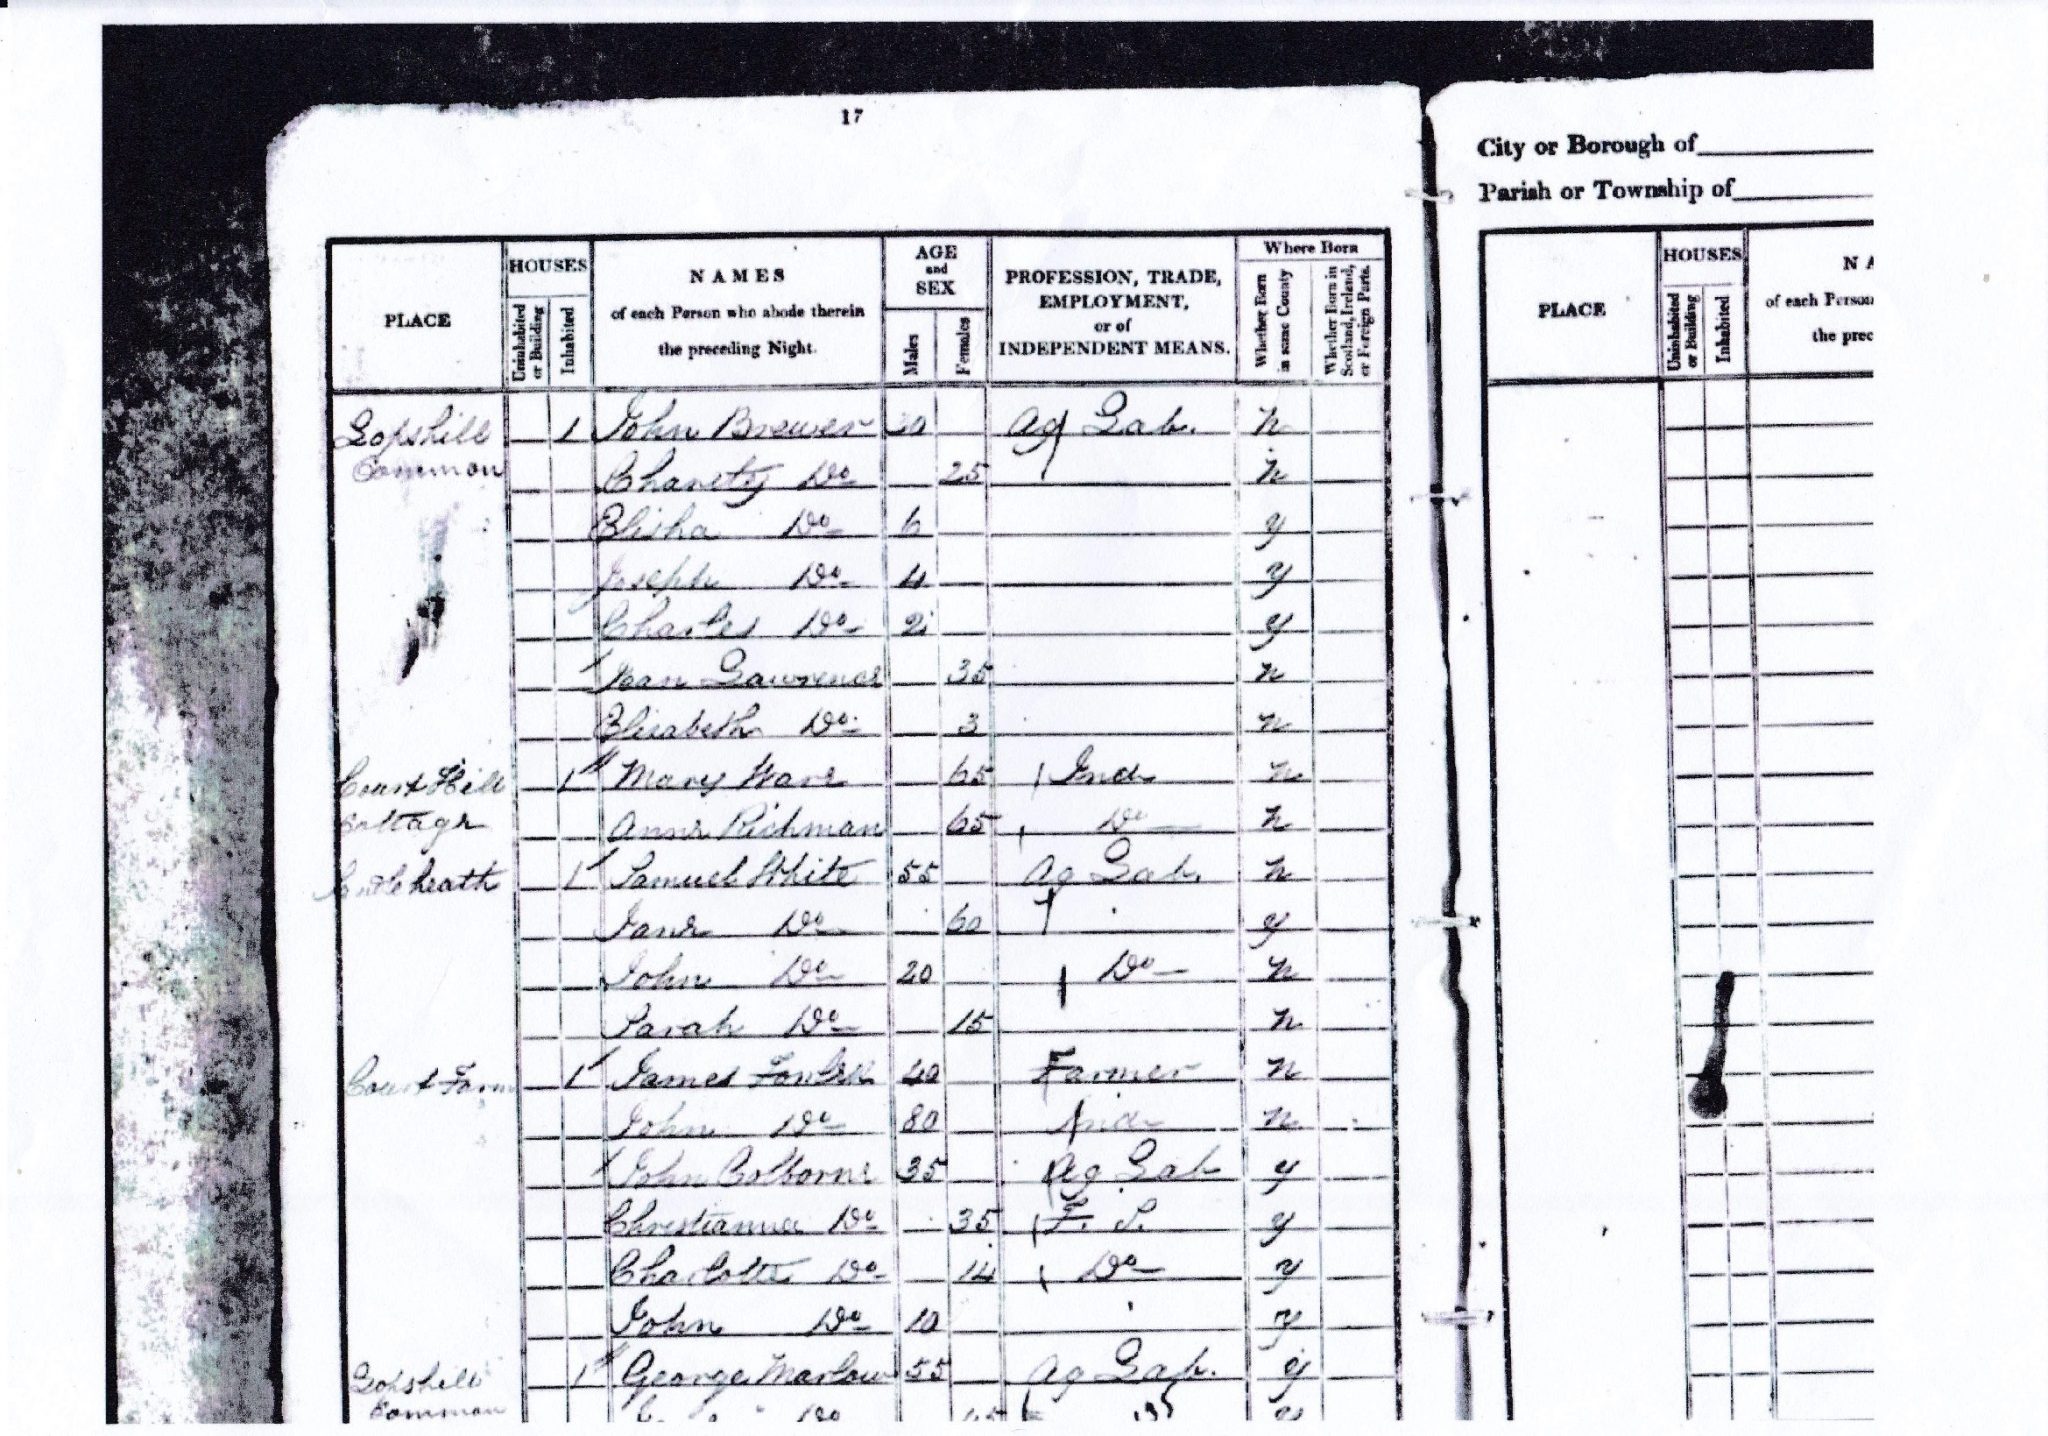 17
City or Borough of
Parish or Township of
PLACE
HOUSES
Uninhabited or Building
Inhabited
NAMES
of each Person who abode therein
the preceding Night.
AGE
and
SEX
Males
Females
PROFESSION, TRADE,
EMPLOYMENT,
or of
INDEPENDENT MEANS.
Where Born
Whether Born in same County
Whether Born in Scotland, Ireland, or Foreign Parts.
Gopshill 1 John Brewer 30 Ag Lab. N
Common Charity Do 25 N
Elisha Do 6 y
Joseph Do 4 y
Charles Do 2 y
Lawrence 35 N
Elizabeth Do 3 N
Court Hill 1 Mary Ware 65 Ind N
Cottage Anne Richman 65 Do N
1 Samuel White 55 Ag Lab. N
Jane Do 60 y
John Do 20 Do N
Sarah Do 15 N
Court Farm 1 James 40 Farmer N
John Do 80 Ind N
John Colborne 35 Ag Lab y
Christianna Do 35 F. S. y
Charlotte Do 14 Do y
John Do 10 y
Gopshill 1 George Marlow 55 Ag Lab. y
Common Do
PLACE
HOUSES
Uninhabited or Building
Inhabited
NA
of each Person
the prec